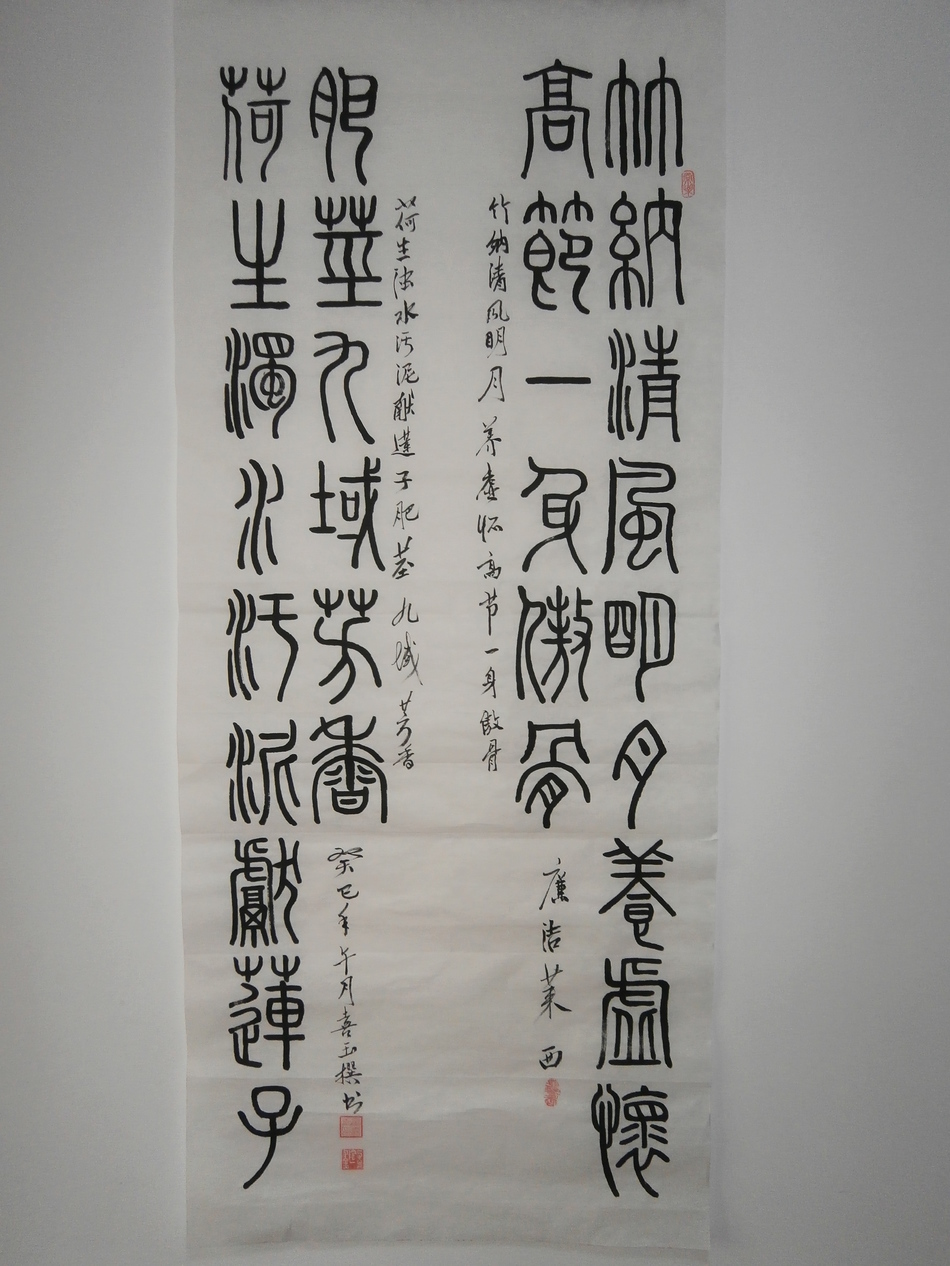 竹納清風明月養虛懷
高節一身傲骨
廉洁莱西
竹纳清风明月养虚怀高节一身傲骨
荷生濁水污泥獻蓮子
肥莖九域芳香
荷生浊水污泥献莲子肥茎九域芳香
癸巳年午月喜玉撰书